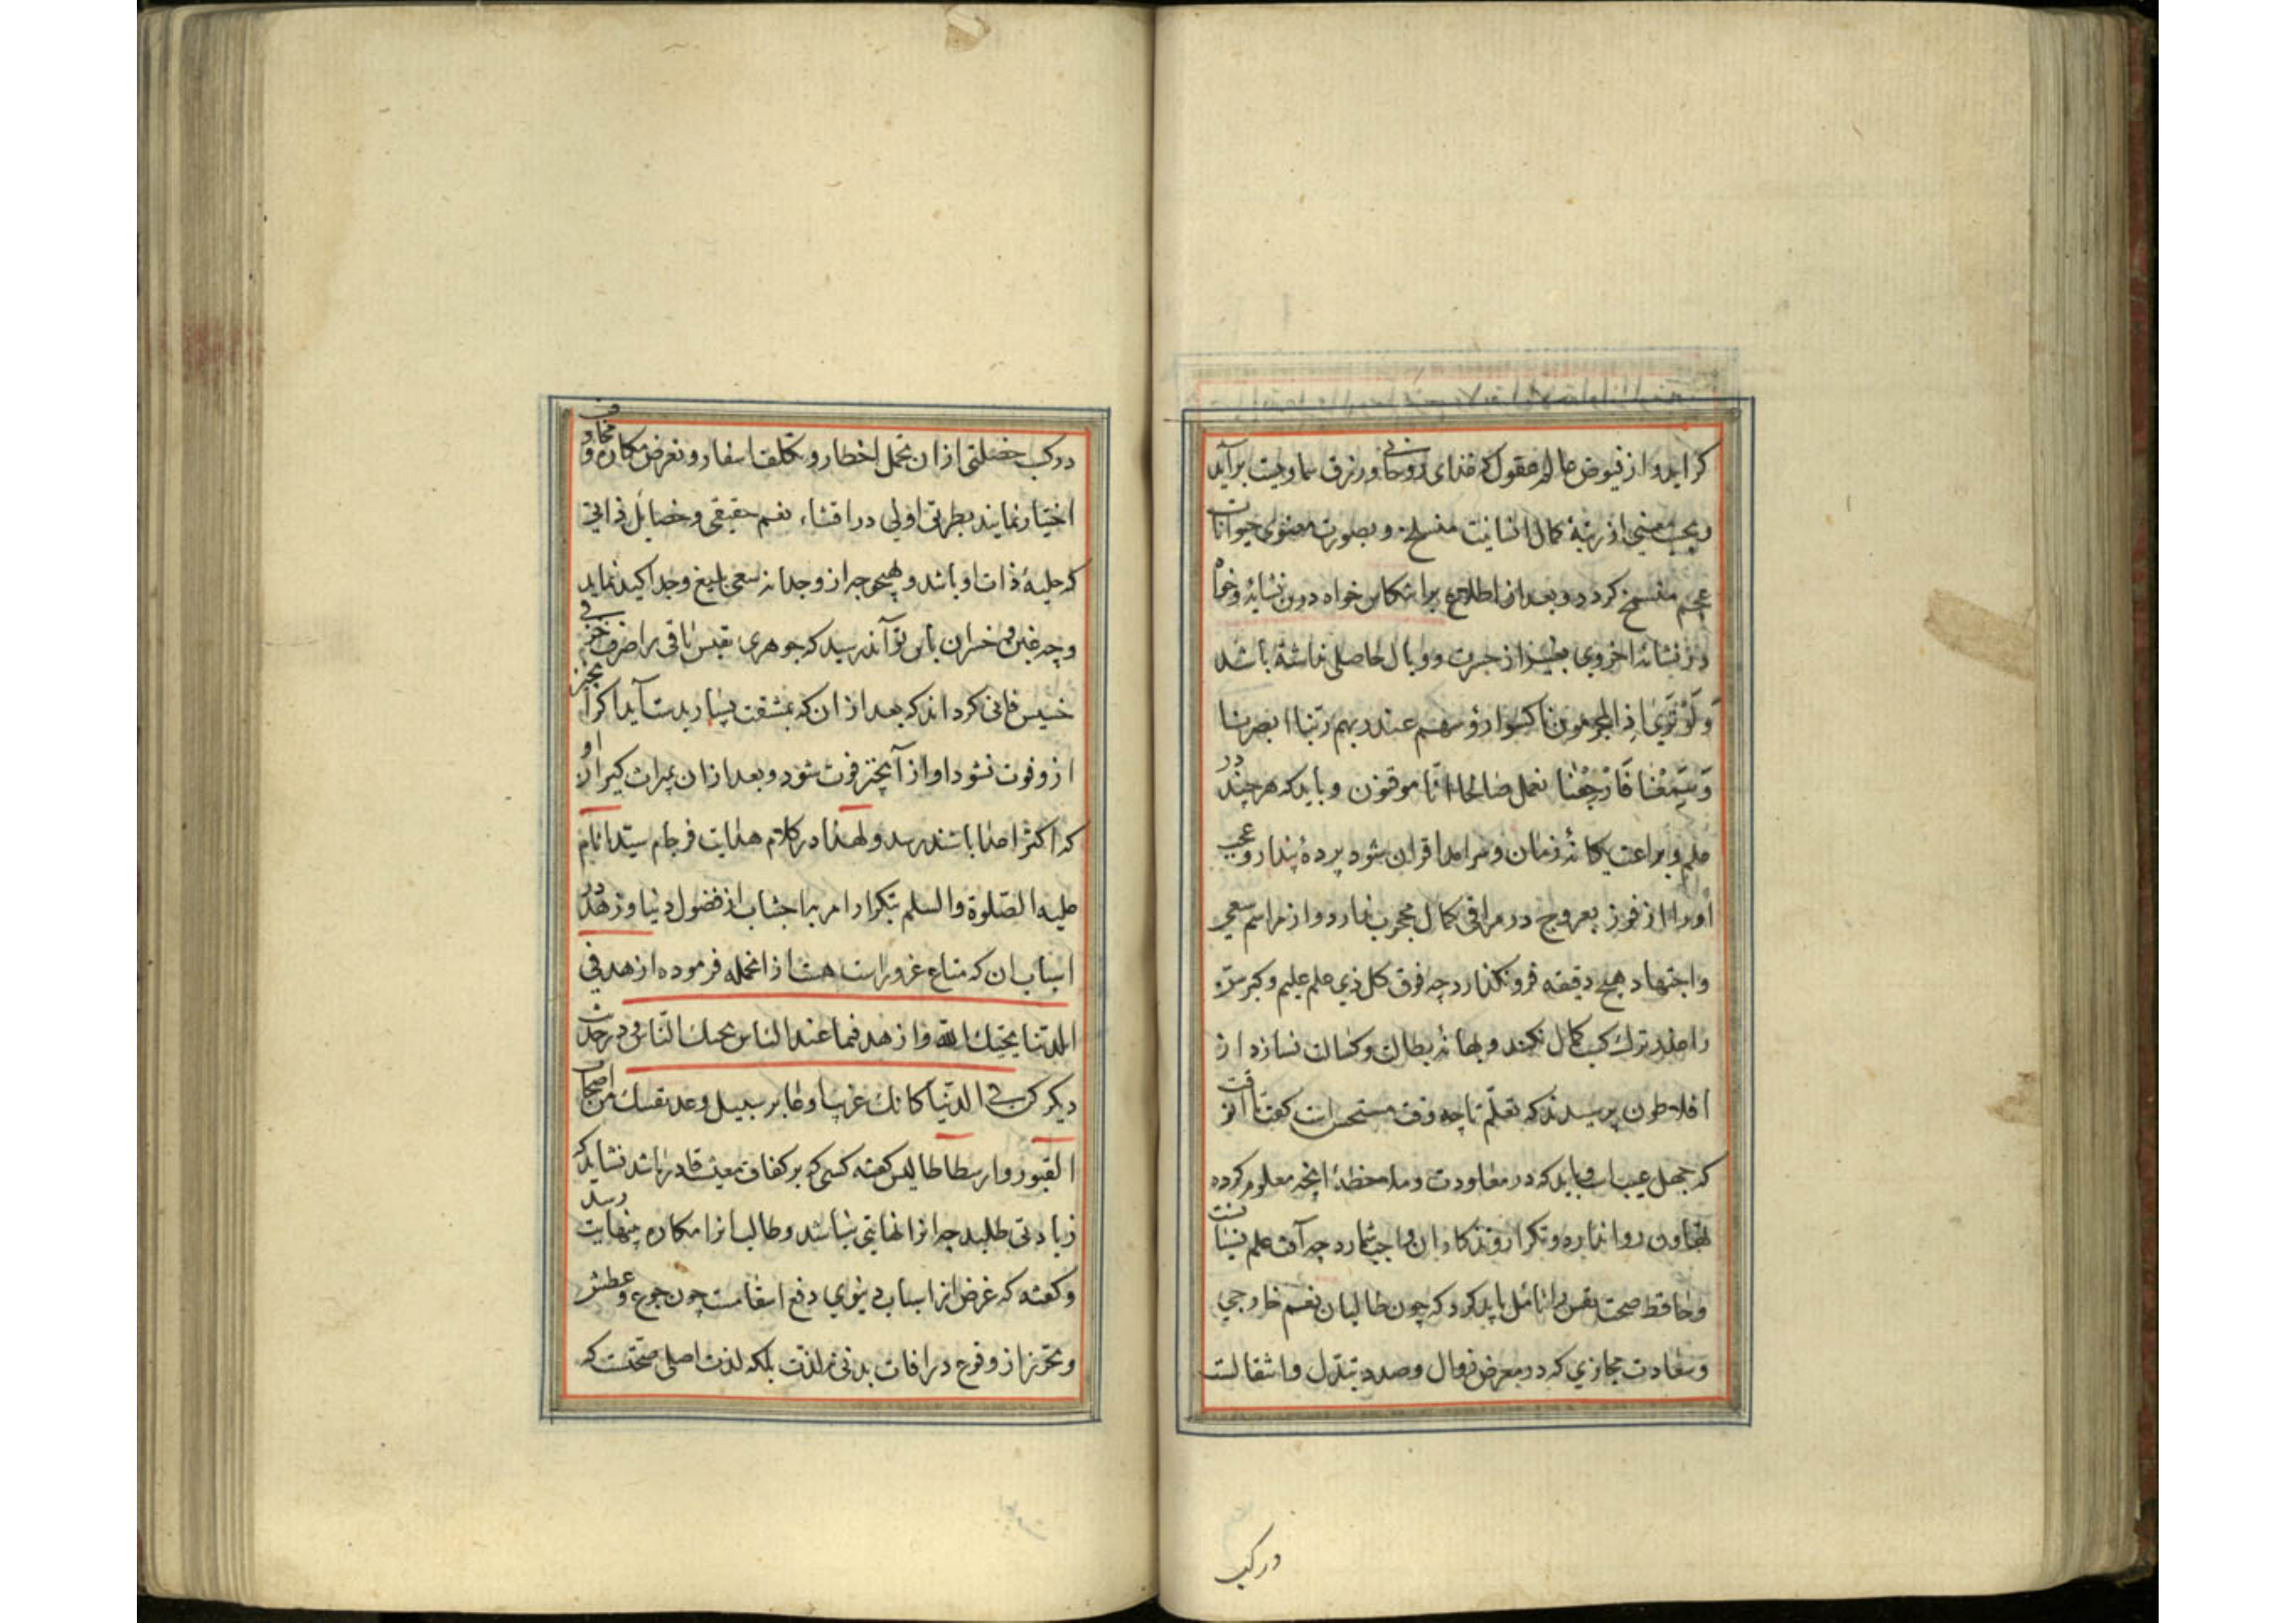 کراید و از فیوض عالم عقول که غذای روحانی و رزق سماویست برآید
و بحسب معنی از رتبهٔ کمال انسانیت منسلخ و بصورت معنوی حیوانات
عجم منفسخ کردد و بعد از اطلاع بر انتکاس خواه درین نشأه و خواه
در نشأه اخروی بغیر از حسرت و وبال حاصلی نداشته باشد
وَلَوْ تَرَیٰ اِذِ المجرمون ناکسوا رؤسهم عند ربهم ربّنا ابصرنا
وَسَمِعْنا فَارْجِعْنا نعمل صالحا انّا موقنون و باید که هر چند در
علم و براعت یکانهٔ زمان و سرامد اقران شود پردهٔ پندار و عجب
او را از فوز بعروج در مراقی کمال محجوب ندارد و از مراسم سعی
و اجتهاد هیچ دقیقه فرو نکذارد چه فوق کل ذی علم علیم و کبر سن
را عذر ترک کسب کمال نکند و بهانهٔ بطالت و کسالت نسازد از
افلاطون پرسیدند که تعلّم تا چه وقت مستحسن است کفت تا آن وقت
که جهل عیب است و باید که در معاودت و ملاحظهٔ آنچه معلوم کرده
تهاون روا ندارد و تکرار و تذکار آن واجب شمارد چه آفت علم نسیانست
و حافظ صحت نفس را تامّل باید کرد که چون طالبان نعم خارجی
و سعادت مجازی که در معرض زوال و صدد تبدّل و انتقالست
در کسب
در کسب خصلتی از ان تحمل اخطار و تکلف اسفار و تعرض مکاره و مخاوف
اختیار نمایند بطریق اولی در اقتناء نعم حقیقی و خصایل ذاتی
که حلیهٔ ذات او باشد و بهیچ وجه از و جدا نه سعی بلیغ و جد اکید نماید
و چه غبن و خسران باین تواند رسید که جوهری نفیس باقی را صرف خزفی
خسیس فانی کرداند که بعد از ان که بمشقت بسیار بدست آید اکر آن چیز
از و فوت نشود او از آن چیز فوت شود و بعد از ان بمیراث کیران او
که اکثر اعدا باشند رسد و لهذا در کلام هدایت فرجام سیّد انام
علیه الصّلوة والسلم بتکرار امر باجتناب از فضول دنیا و زهد در
اسباب ان که متاع غرور است هست از انجمله فرموده ازهد فی
الدّنیا یحبّک الله وازهد فیما عند الناس یحبک النّاس و در حدیث
دیکر کن فی الدّنیا کانک غریب او عابر سبیل وعد نفسک من اصحاب
القبور و ارسطاطالیس کفته کسی که بر کفاف معیشت قادر باشد نشاید که
زیادتی طلبد چه انرا نهایتی نباشد و طالب انرا مکاره بینهایت رسد
و کفته که غرض از اسباب دنیوی دفع اسقامست چون جوع و عطش
و تحرز از وقوع در افات بدنی نه لذت بلکه لذت اصلی صحّتست که